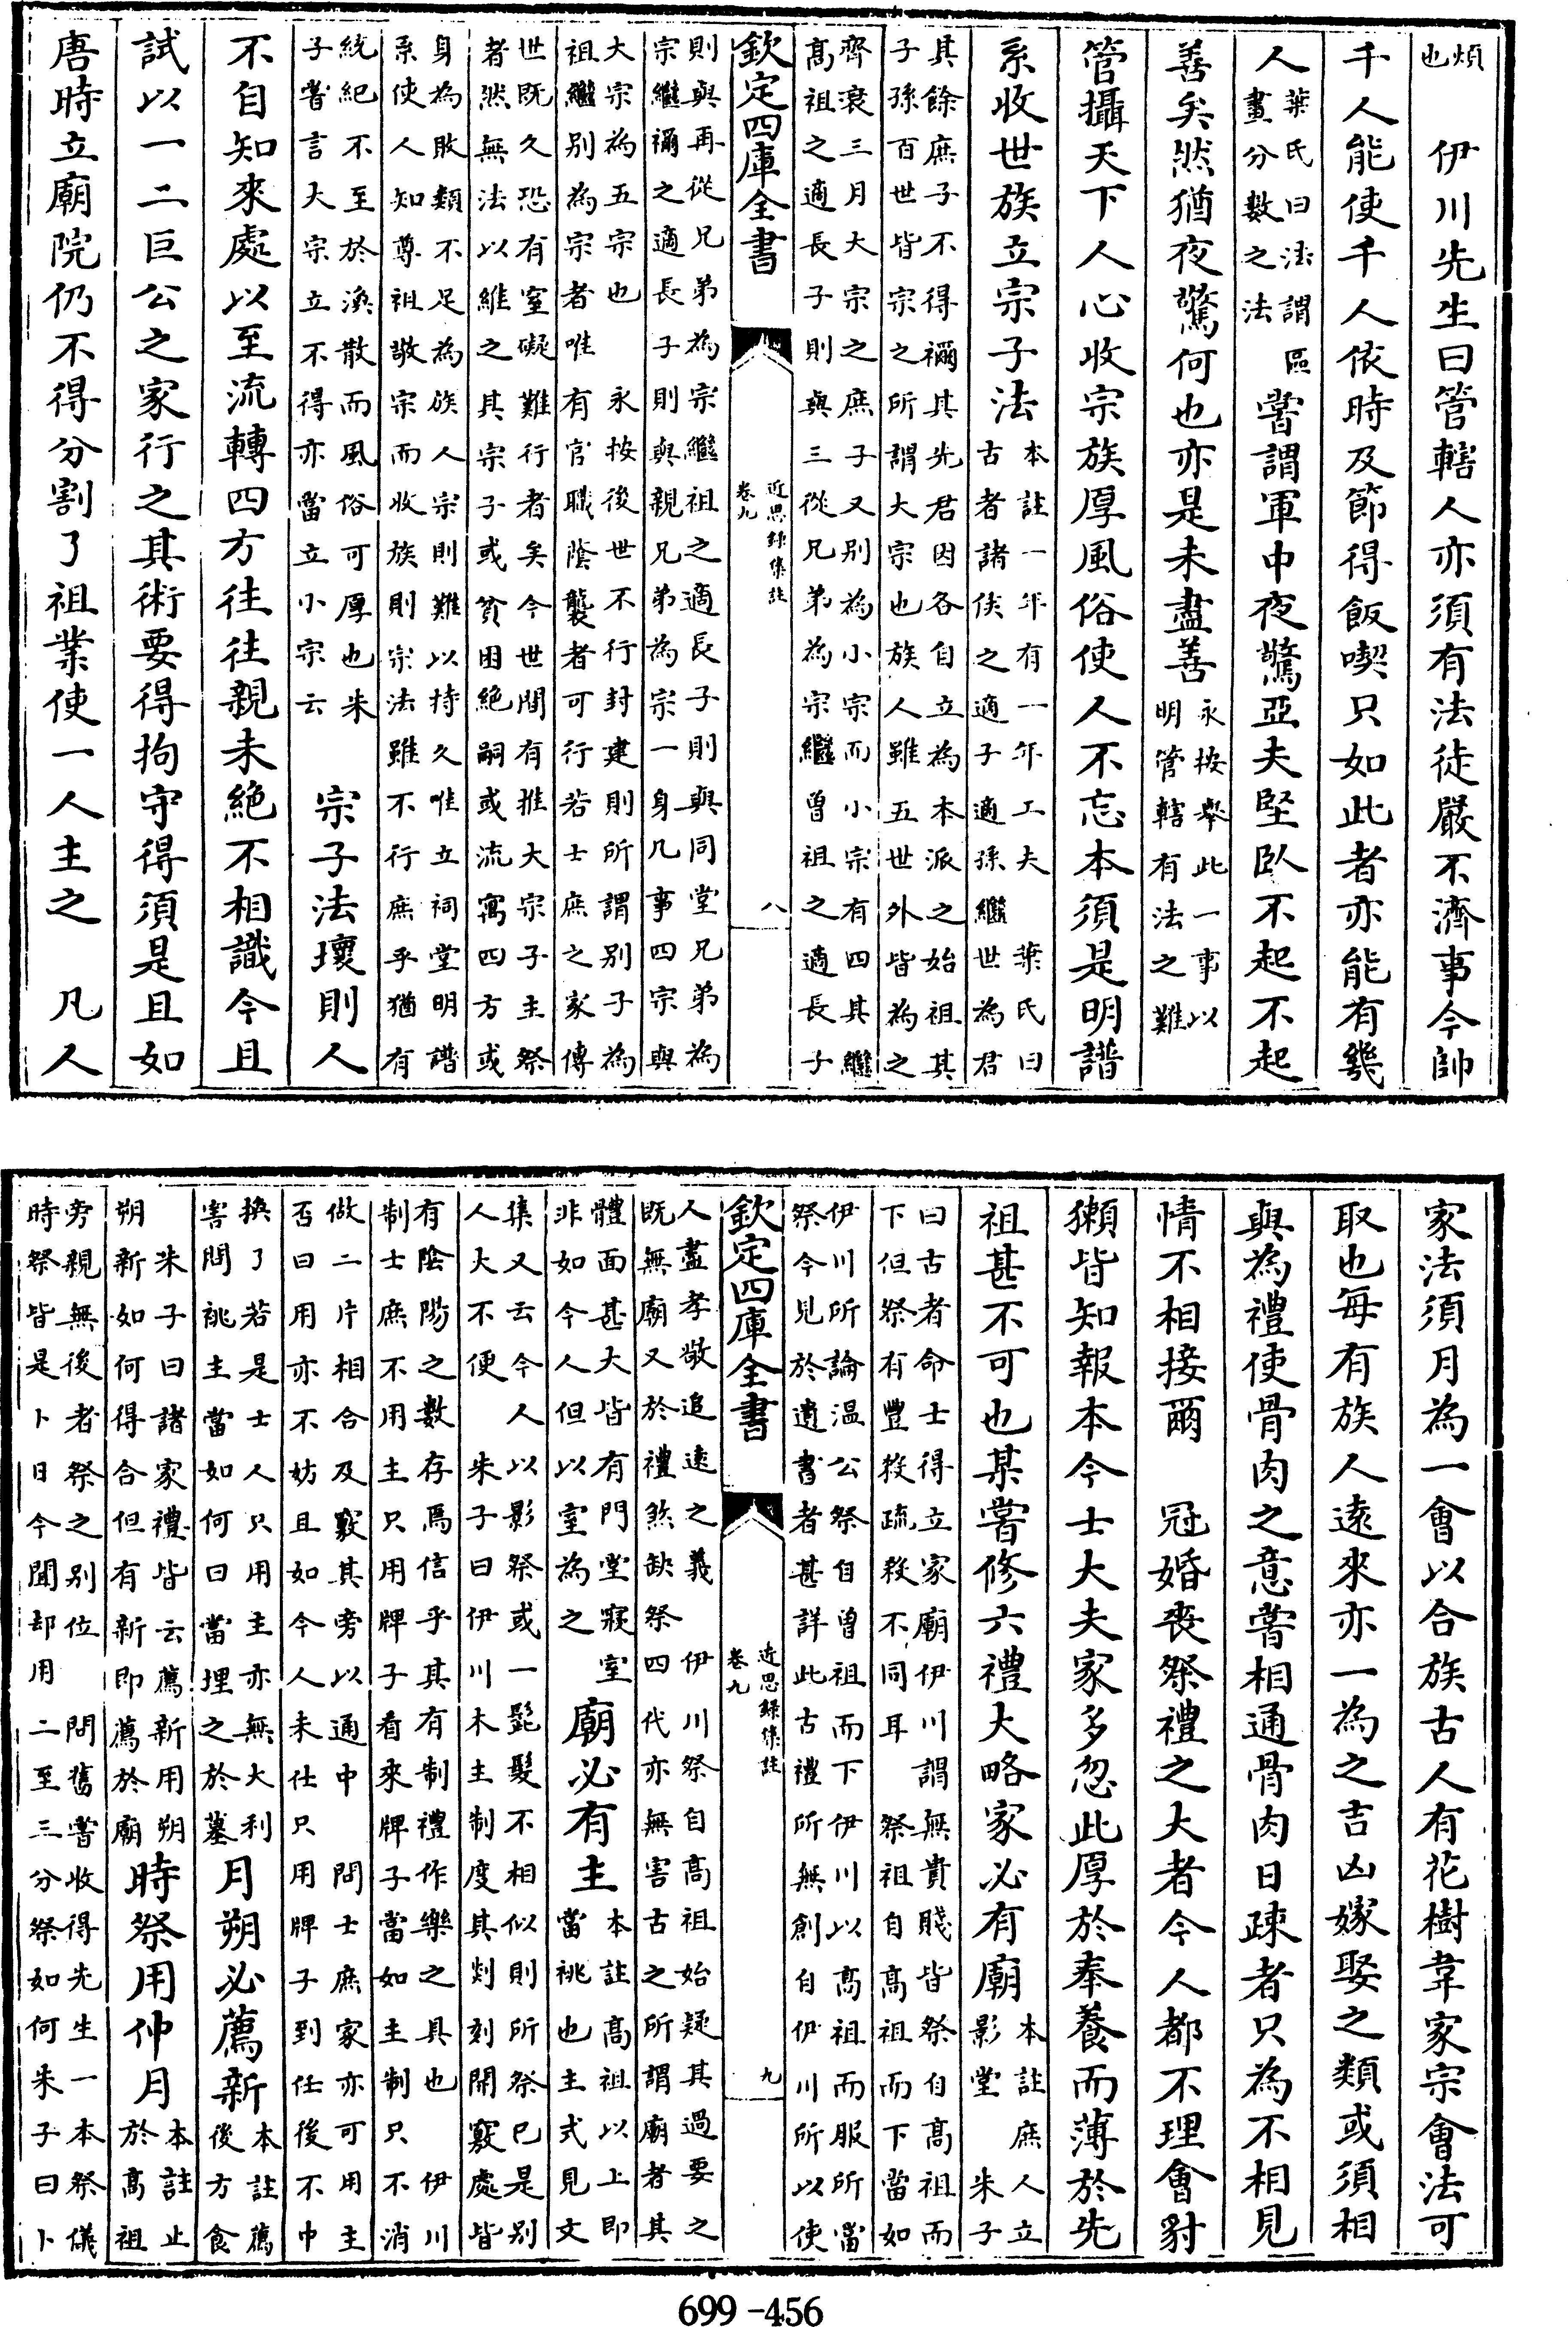 煩也　伊川先生曰管轄人亦須有法徒嚴不濟事今帥
千人能使千人依時及節得飯喫只如此者亦能有幾
人葉氏曰法謂區
畫分數之法嘗謂軍中夜驚亞夫堅臥不起不起
善矣然猶夜驚何也亦是未盡善永按舉此一事以
明管轄有法之難
管攝天下人心收宗族厚風俗使人不忘本須是明譜
系收世族立宗子法本註一年有一年工夫　葉氏曰
古者諸侯之適子適孫繼世為君
其餘庶子不得禰其先君因各自立為本派之始祖其
子孫百世皆宗之所謂大宗也族人雖五世外皆為之
齊衰三月大宗之庶子又別為小宗而小宗有四其繼
高祖之適長子則與三從兄弟為宗繼曾祖之適長子
欽定四庫全書　近思錄集註
卷九　八
則與再從兄弟為宗繼祖之適長子則與同堂兄弟為
宗繼禰之適長子則與親兄弟為宗一身凡事四宗與
大宗為五宗也　永按後世不行封建則所謂別子為
祖繼別為宗者唯有官職蔭襲者可行若士庶之家傳
世既久恐有室礙難行者矣今世間有推大宗子主祭
者然無法以維之其宗子或貧困絕嗣或流寓四方或
身為敗類不足為族人宗則難以持久唯立祠堂明譜
系使人知尊祖敬宗而收族則宗法雖不行庶乎猶有
統紀不至於渙散而風俗可厚也朱
子嘗言大宗立不得亦當立小宗云　宗子法壞則人
不自知來處以至流轉四方往往親未絕不相識今且
試以一二巨公之家行之其術要得拘守得須是且如
唐時立廟院仍不得分割了祖業使一人主之　凡人
家法須月為一會以合族古人有花樹韋家宗會法可
取也每有族人遠來亦一為之吉凶嫁娶之類或須相
與為禮使骨肉之意嘗相通骨肉日疎者只為不相見
情不相接爾　冠婚喪祭禮之大者今人都不理會豺
獺皆知報本今士大夫家多忽此厚於奉養而薄於先
祖甚不可也某嘗修六禮大略家必有廟本註庶人立
影堂　朱子
曰古者命士得立家廟伊川謂無貴賤皆祭自高祖而
下但祭有豐殺疏殺不同耳　祭祖自高祖而下當如
伊川所論溫公祭自曾祖而下伊川以高祖而服所當
祭今見於遺書者甚詳此古禮所無創自伊川所以使
欽定四庫全書　近思錄集註
卷九　九
人盡孝敬追遠之義　伊川祭自高祖始疑其過要之
既無廟又於禮煞缺祭四代亦無害古之所謂廟者其
體面甚大皆有門堂寢室
非如今人但以室為之　廟必有主本註高祖以上即
當祧也主式見文
集又云今人以影祭或一髭髮不相似則所祭已是別
人大不便　朱子曰伊川木主制度其剡刻開竅處皆
有陰陽之數存焉信乎其有制禮作樂之具也　伊川
制士庶不用主只用牌子看來牌子當如主制只不消
做二片相合及竅其旁以通中　問士庶家亦可用主
否曰用亦不妨且如今人未仕只用牌子到任後不中
換了若是士人只用主亦無大利
害問祧主當如何曰當埋之於墓　月朔必薦新本註薦
後方食
朱子曰諸家禮皆云薦新用朔
朔新如何得合但有新即薦於廟　時祭用仲月本註止
於高祖
旁親無後者祭之別位　問舊嘗收得先生一本祭儀
時祭皆是卜日今聞却用二至三分祭如何朱子曰卜
699-456